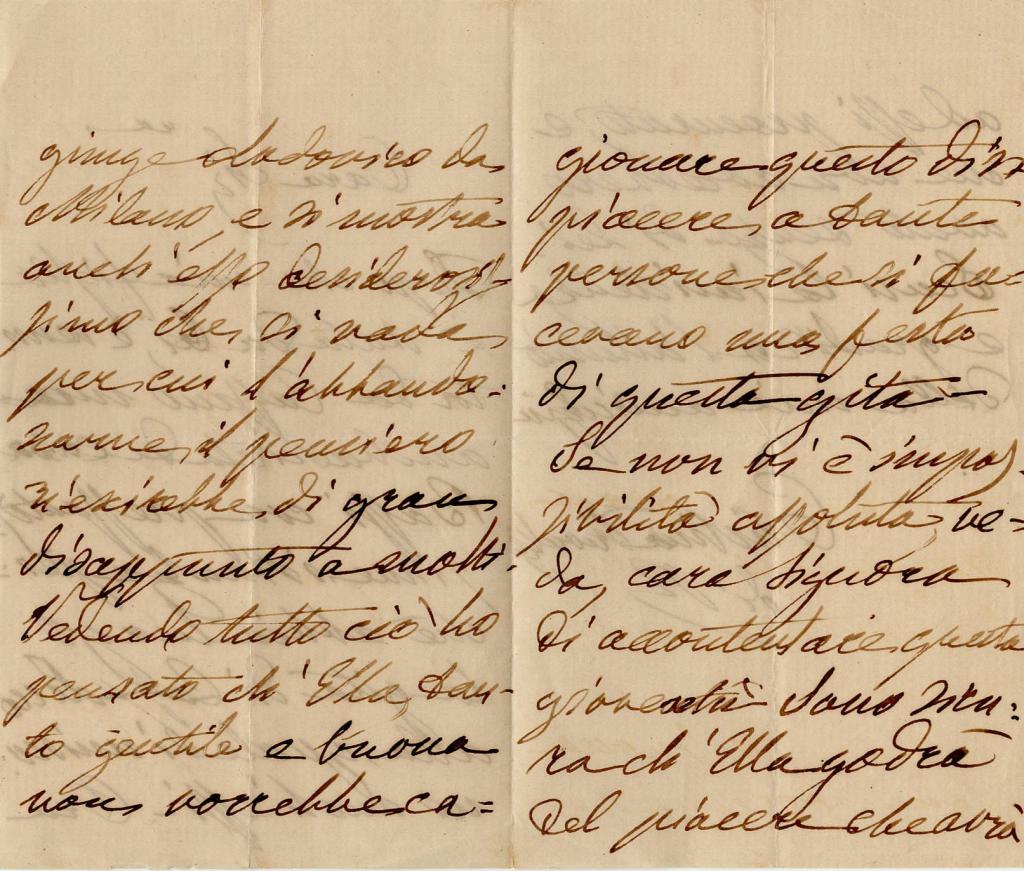 giunge Lodovico da
Milano, e si mostra
anch'esso desideros=
simo che si vada
per cui l'abbando=
narne il pensiero
riescirebbe di gran
disappunto a molti.
Vedendo tutto ciò ho
pensato ch'Ella, tan=
to gentile e buona
non vorrebbe ca=
gionare questo dis=
piacere a tante
persone che si fa=
cevano una festa
di questa gita=
Se non vi è impos=
sibilità assoluta, ve=
da, cara Signora
di accontentare questa
gioventù Sono sicu=
ra ch'Ella godrà
del piacere che avrà